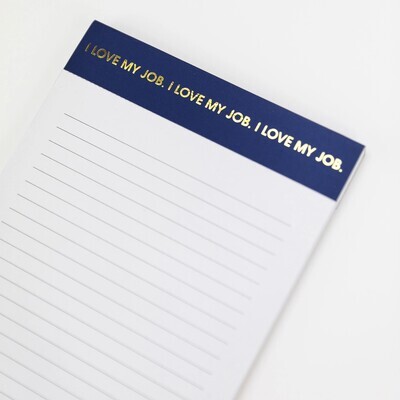 I LOVE MY JOB. I LOVE MY JOB. I LOVE MY JOB.